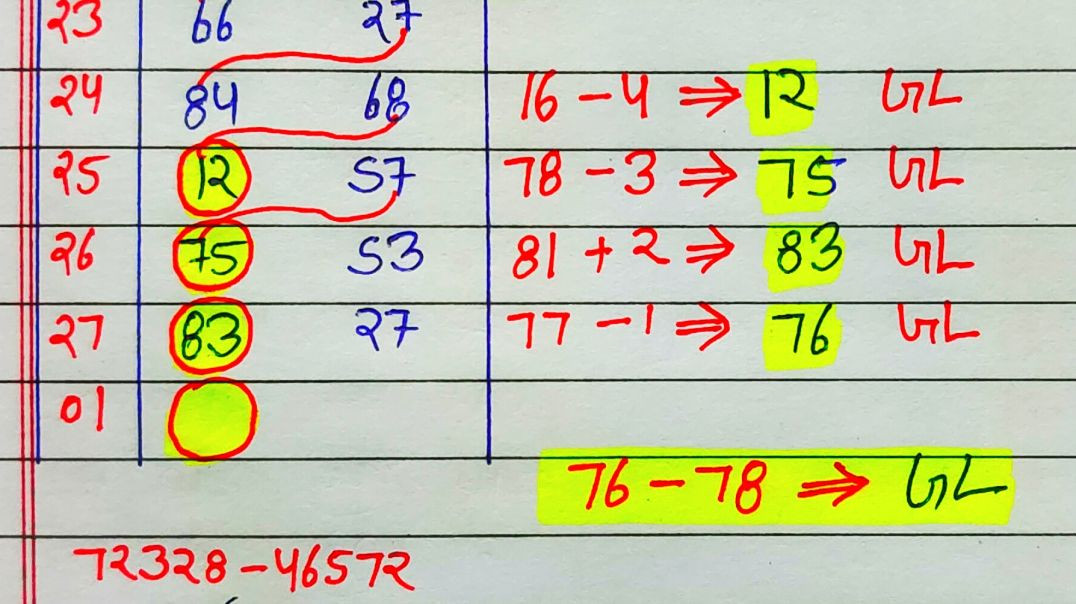 23 66 27
24 84 68 16 - 4 ⇒ 12 GL
25 12 57 78 - 3 ⇒ 75 GL
26 75 53 81 + 2 ⇒ 83 GL
27 83 27 77 - 1 ⇒ 76 GL
01
76 - 78 ⇒ GL
72328-46572